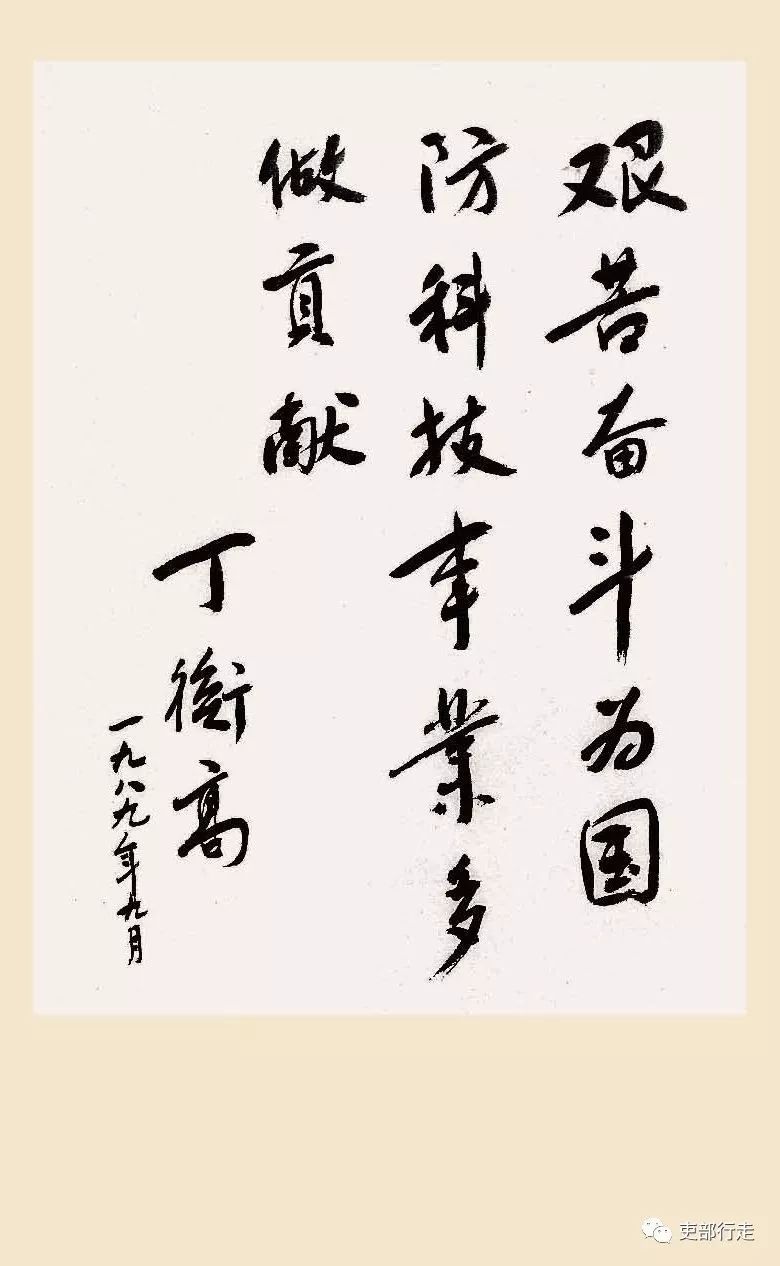 艰苦奋斗为国
防科技事業多
做貢献
丁衡高
一九八九年九月
吏部行走